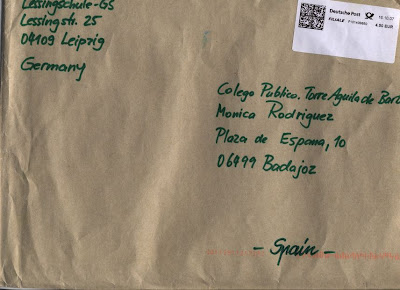 Lessingschule-GS
Lessingstr. 25
04109 Leipzig
Germany
Deutsche Post
FILIALE
4.00 EUR
Colego Publico. Torre Aguila de Bar
Monica Rodriguez
Plaza de Espana, 10
06499 Badajoz
- Spain -